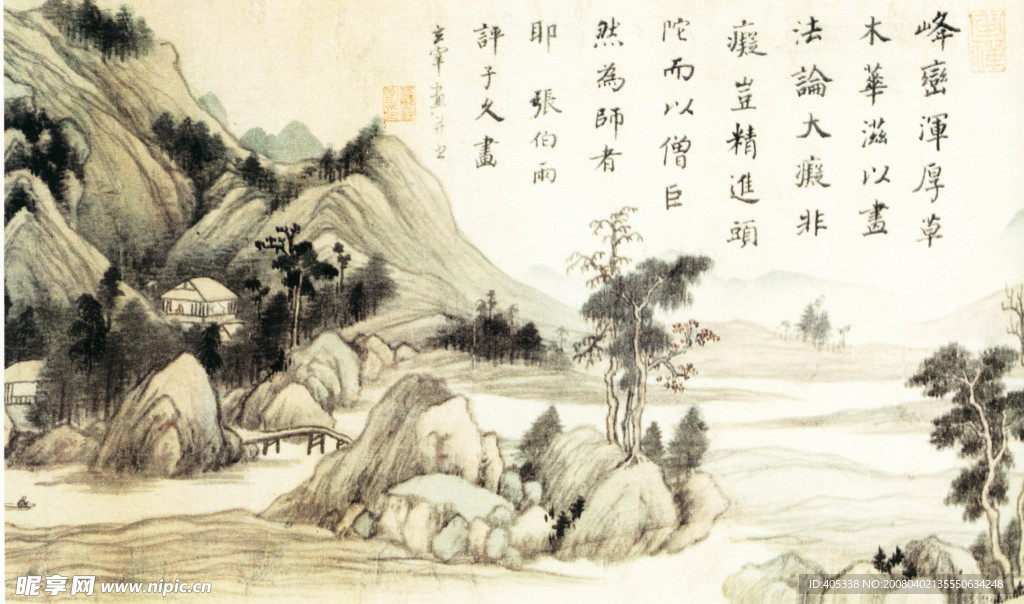 峰巒渾厚草
木華滋以畫
法論大癡非
癡豈精進頭
陀而以僧巨
然為師者
耶 張伯雨
評子久畫
玄宰畫并
昵享网 www.nipic.cn
ID:405338 NO:20080402135550634248